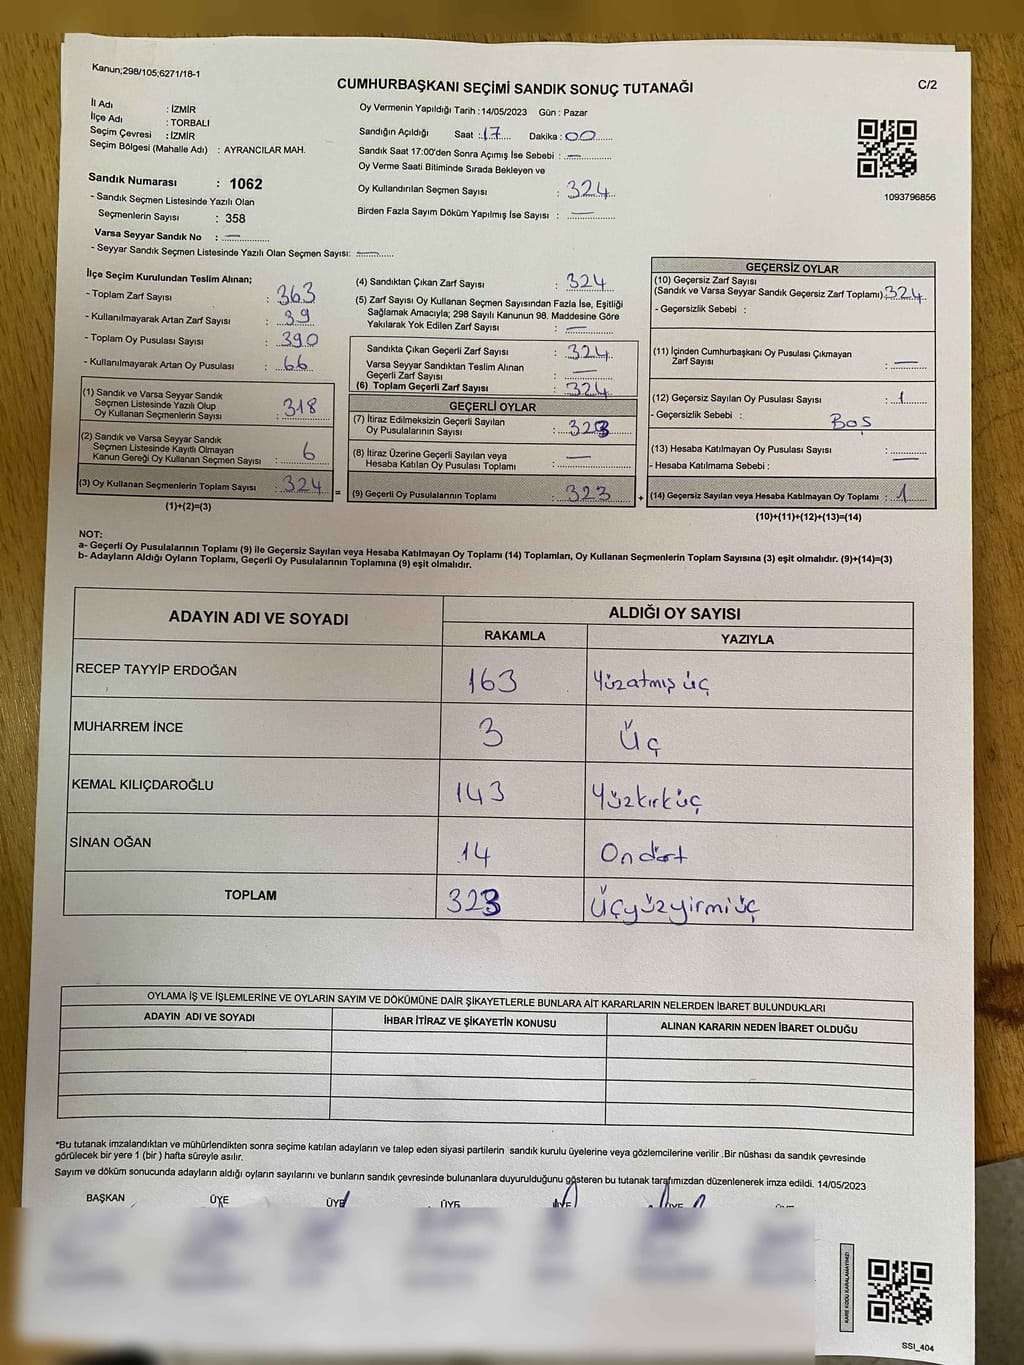 Kanun;298/105;6271/18-1
CUMHURBAŞKANI SEÇİMİ SANDIK SONUÇ TUTANAĞI
C/2
İl Adı : İZMİR
İlçe Adı : TORBALI
Seçim Çevresi : İZMİR
Seçim Bölgesi (Mahalle Adı) : AYRANCILAR MAH.
Sandık Numarası : 1062
- Sandık Seçmen Listesinde Yazılı Olan
Seçmenlerin Sayısı : 358
Varsa Seyyar Sandık No : —
- Seyyar Sandık Seçmen Listesinde Yazılı Olan Seçmen Sayısı: —
Oy Vermenin Yapıldığı Tarih : 14/05/2023 Gün : Pazar
Sandığın Açıldığı Saat : 17 Dakika : 00
Sandık Saat 17:00'den Sonra Açımış İse Sebebi : —
Oy Verme Saati Bitiminde Sırada Bekleyen ve
Oy Kullandırılan Seçmen Sayısı : 324
Birden Fazla Sayım Döküm Yapılmış İse Sayısı : —
1093796856
İlçe Seçim Kurulundan Teslim Alınan;
- Toplam Zarf Sayısı : 363
- Kullanılmayarak Artan Zarf Sayısı : 39
- Toplam Oy Pusulası Sayısı : 390
- Kullanılmayarak Artan Oy Pusulası : 66
(1) Sandık ve Varsa Seyyar Sandık
Seçmen Listesinde Yazılı Olup
Oy Kullanan Seçmenlerin Sayısı : 318
(2) Sandık ve Varsa Seyyar Sandık
Seçmen Listesinde Kayıtlı Olmayan
Kanun Gereği Oy Kullanan Seçmen Sayısı : 6
(3) Oy Kullanan Seçmenlerin Toplam Sayısı : 324
(1)+(2)=(3)
=
(4) Sandıktan Çıkan Zarf Sayısı : 324
(5) Zarf Sayısı Oy Kullanan Seçmen Sayısından Fazla İse, Eşitliği
Sağlamak Amacıyla; 298 Sayılı Kanunun 98. Maddesine Göre
Yakılarak Yok Edilen Zarf Sayısı : —
Sandıkta Çıkan Geçerli Zarf Sayısı : 324
Varsa Seyyar Sandıktan Teslim Alınan
Geçerli Zarf Sayısı : —
(6) Toplam Geçerli Zarf Sayısı 324
GEÇERLİ OYLAR
(7) İtiraz Edilmeksizin Geçerli Sayılan
Oy Pusulalarının Sayısı : 323
(8) İtiraz Üzerine Geçerli Sayılan veya
Hesaba Katılan Oy Pusulası Toplamı : —
(9) Geçerli Oy Pusulalarının Toplamı : 323
+
GEÇERSİZ OYLAR
(10) Geçersiz Zarf Sayısı
(Sandık ve Varsa Seyyar Sandık Geçersiz Zarf Toplamı) 324
- Geçersizlik Sebebi :
(11) İçinden Cumhurbaşkanı Oy Pusulası Çıkmayan
Zarf Sayısı : —
(12) Geçersiz Sayılan Oy Pusulası Sayısı : 1
- Geçersizlik Sebebi : BOŞ
(13) Hesaba Katılmayan Oy Pusulası Sayısı : —
- Hesaba Katılmama Sebebi :
(14) Geçersiz Sayılan veya Hesaba Katılmayan Oy Toplamı : 1
(10)+(11)+(12)+(13)=(14)
NOT:
a- Geçerli Oy Pusulalarının Toplamı (9) ile Geçersiz Sayılan veya Hesaba Katılmayan Oy Toplamı (14) Toplamları, Oy Kullanan Seçmenlerin Toplam Sayısına (3) eşit olmalıdır. (9)+(14)=(3)
b- Adayların Aldığı Oyların Toplamı, Geçerli Oy Pusulalarının Toplamına (9) eşit olmalıdır.
ADAYIN ADI VE SOYADI ALDIĞI OY SAYISI
RAKAMLA YAZIYLA
RECEP TAYYİP ERDOĞAN 163 Yüzatmış üç
MUHARREM İNCE 3 Üç
KEMAL KILIÇDAROĞLU 143 Yüzkırküç
SİNAN OĞAN 14 On dört
TOPLAM 323 Üçyüzyirmiüç
OYLAMA İŞ VE İŞLEMLERİNE VE OYLARIN SAYIM VE DÖKÜMÜNE DAİR ŞİKAYETLERLE BUNLARA AİT KARARLARIN NELERDEN İBARET BULUNDUKLARI
ADAYIN ADI VE SOYADI İHBAR İTİRAZ VE ŞİKAYETİN KONUSU ALINAN KARARIN NEDEN İBARET OLDUĞU
*Bu tutanak imzalandıktan ve mühürlendikten sonra seçime katılan adayların ve talep eden siyasi partilerin sandık kurulu üyelerine veya gözlemcilerine verilir .Bir nüshası da sandık çevresinde
görülecek bir yere 1 (bir ) hafta süreyle asılır.
Sayım ve döküm sonucunda adayların aldığı oyların sayılarını ve bunların sandık çevresinde bulunanlara duyurulduğunu gösteren bu tutanak tarafımızdan düzenlenerek imza edildi. 14/05/2023
BAŞKAN ÜYE ÜYE ÜYE ÜYE ÜYE
KARE KODU KARALAMAYINIZ!
SSI_404